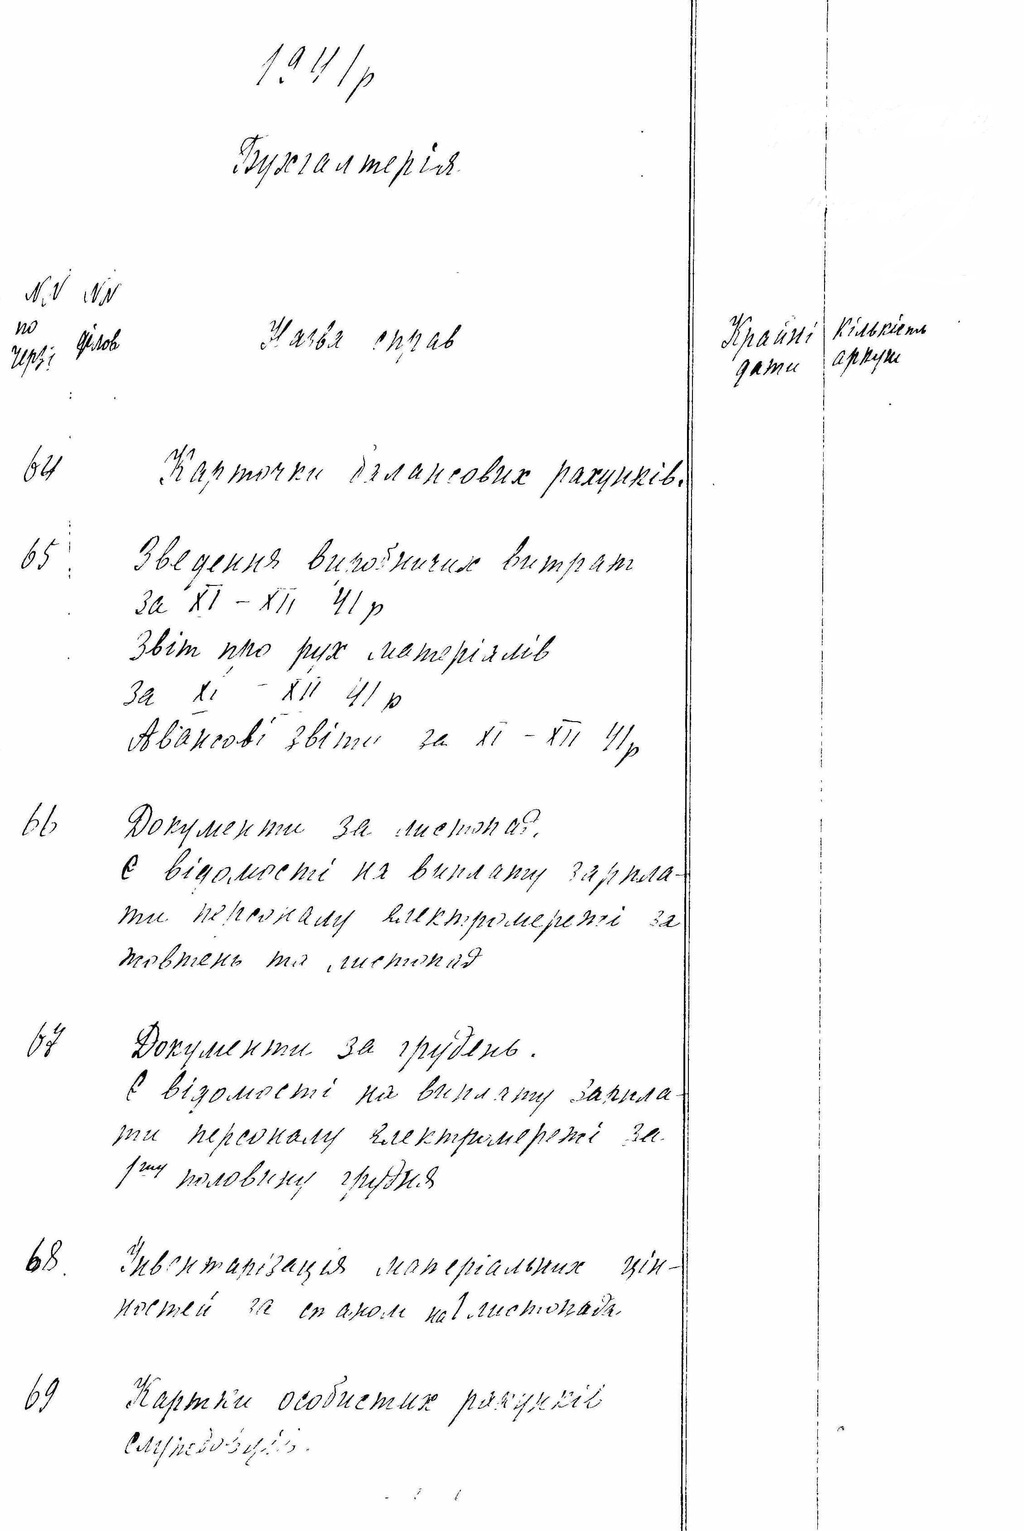 1941р
Бухгалтерія
NN NN
по
черзі ділов Назва справ Крайні дати кількість аркуш
64 Карточки балансових рахунків.
65 Зведення виробничих витрат
за XI – XII 41р
Звіт про рух матеріялів
за XI – XII 41р
Авансові звіти за XI – XII 41р
66 Документи за листопад.
Є відомості на виплату зарпла-
ти персоналу електромережі за
жовтень та листопад
67 Документи за грудень.
Є відомості на виплату зарпла-
ти персоналу електромережі за
1шу половину грудня
68. Інвентарізація матеріальних цін-
ностей за станом на 1 листопада
69 Картки особистих рахунків
службовців.